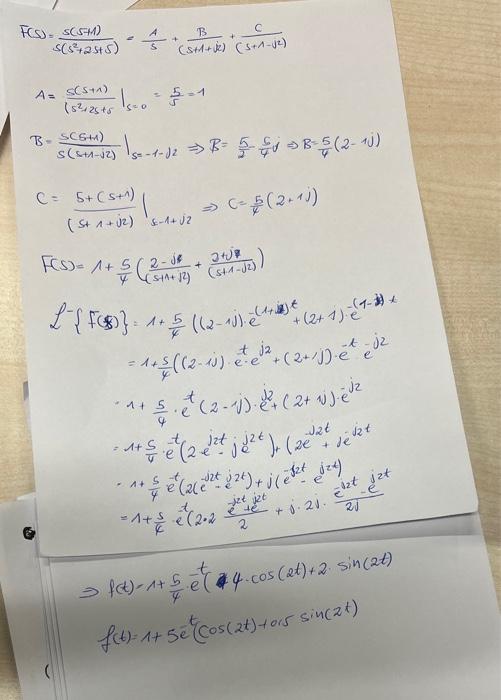 F(s) = 5(s+1) / s(s²+2s+5) = A/s + B/(s+1+j2) + C/(s+1-j2)
A = 5(s+1) / (s²+2s+5 |s=0 = 5/5 = 1
B = 5(s+1) / s(s+1-j2) | s=-1-j2 ⇒ B = 5/2 - 5/4 j ⇒ B = 5/4 (2-1j)
C = 5+(s+1) / (s+1+j2) | s-1+j2 ⇒ C = 5/4 (2+1j)
F(s) = 1 + 5/4 ( 2-j / (s+1+j2) + 2+j / (s+1-j2) )
L⁻{F(s)} = 1 + 5/4 ((2-1j) · e^-(1+j2)t + (2+1j) · e^-(1-j2)t
= 1 + 5/4 ((2-1j) · e^-t · e^j2 + (2+1j) · e^-t · e^-j2
= 1 + 5/4 · e^-t (2-1j) · e^j2 + (2+1j) · e^-j2
= 1 + 5/4 · e^-t (2·e^j2t - je^j2t) + (2e^-j2t + je^-j2t
= 1 + 5/4 e^-t (2(e^-j2t + e^j2t) + j(e^-j2t - e^j2t)
= 1 + 5/4 · e^-t (2·2 e^j2t + e^-j2t / 2 + j·2j · e^-j2t - e^j2t / 2j
⇒ f(t) = 1 + 5/4 · e^-t ( 4·cos(2t) + 2·sin(2t)
f(t) = 1 + 5e^-t (cos(2t) + 0,5 sin(2t)